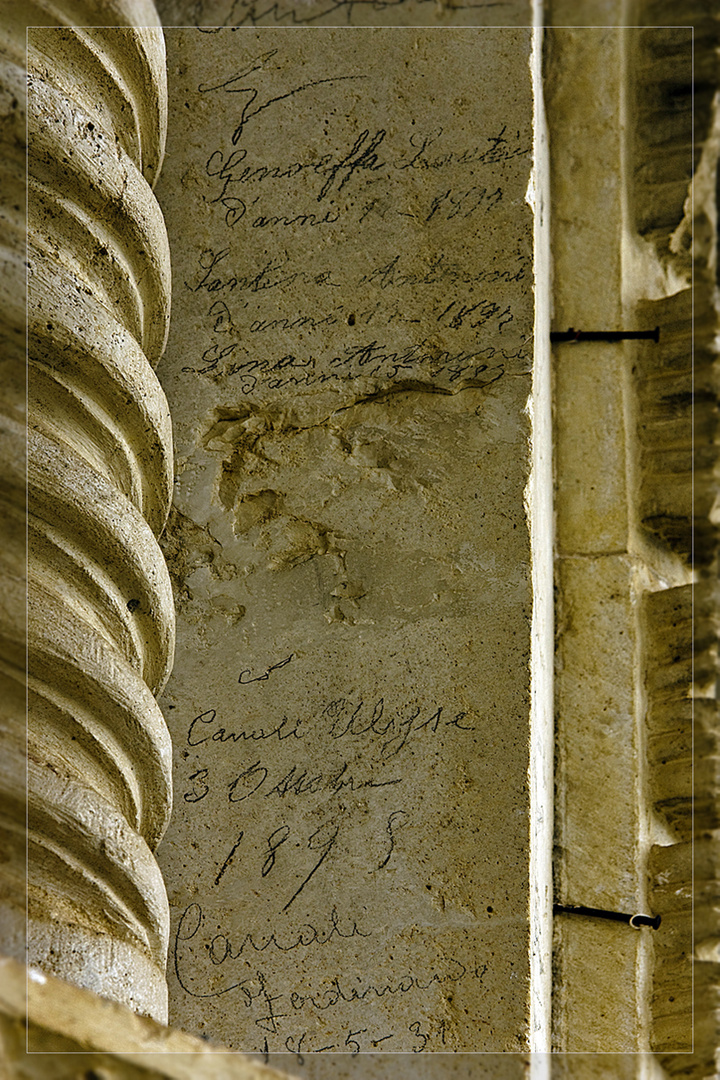 Genoeffa
d'anni 1893
Santina Antonini
d'anni 1893
Lina Antonini
d'anni 15 1893
Canali Ulysse
3 Ottobre
1898
Canali
Ferdinando
18-5-31